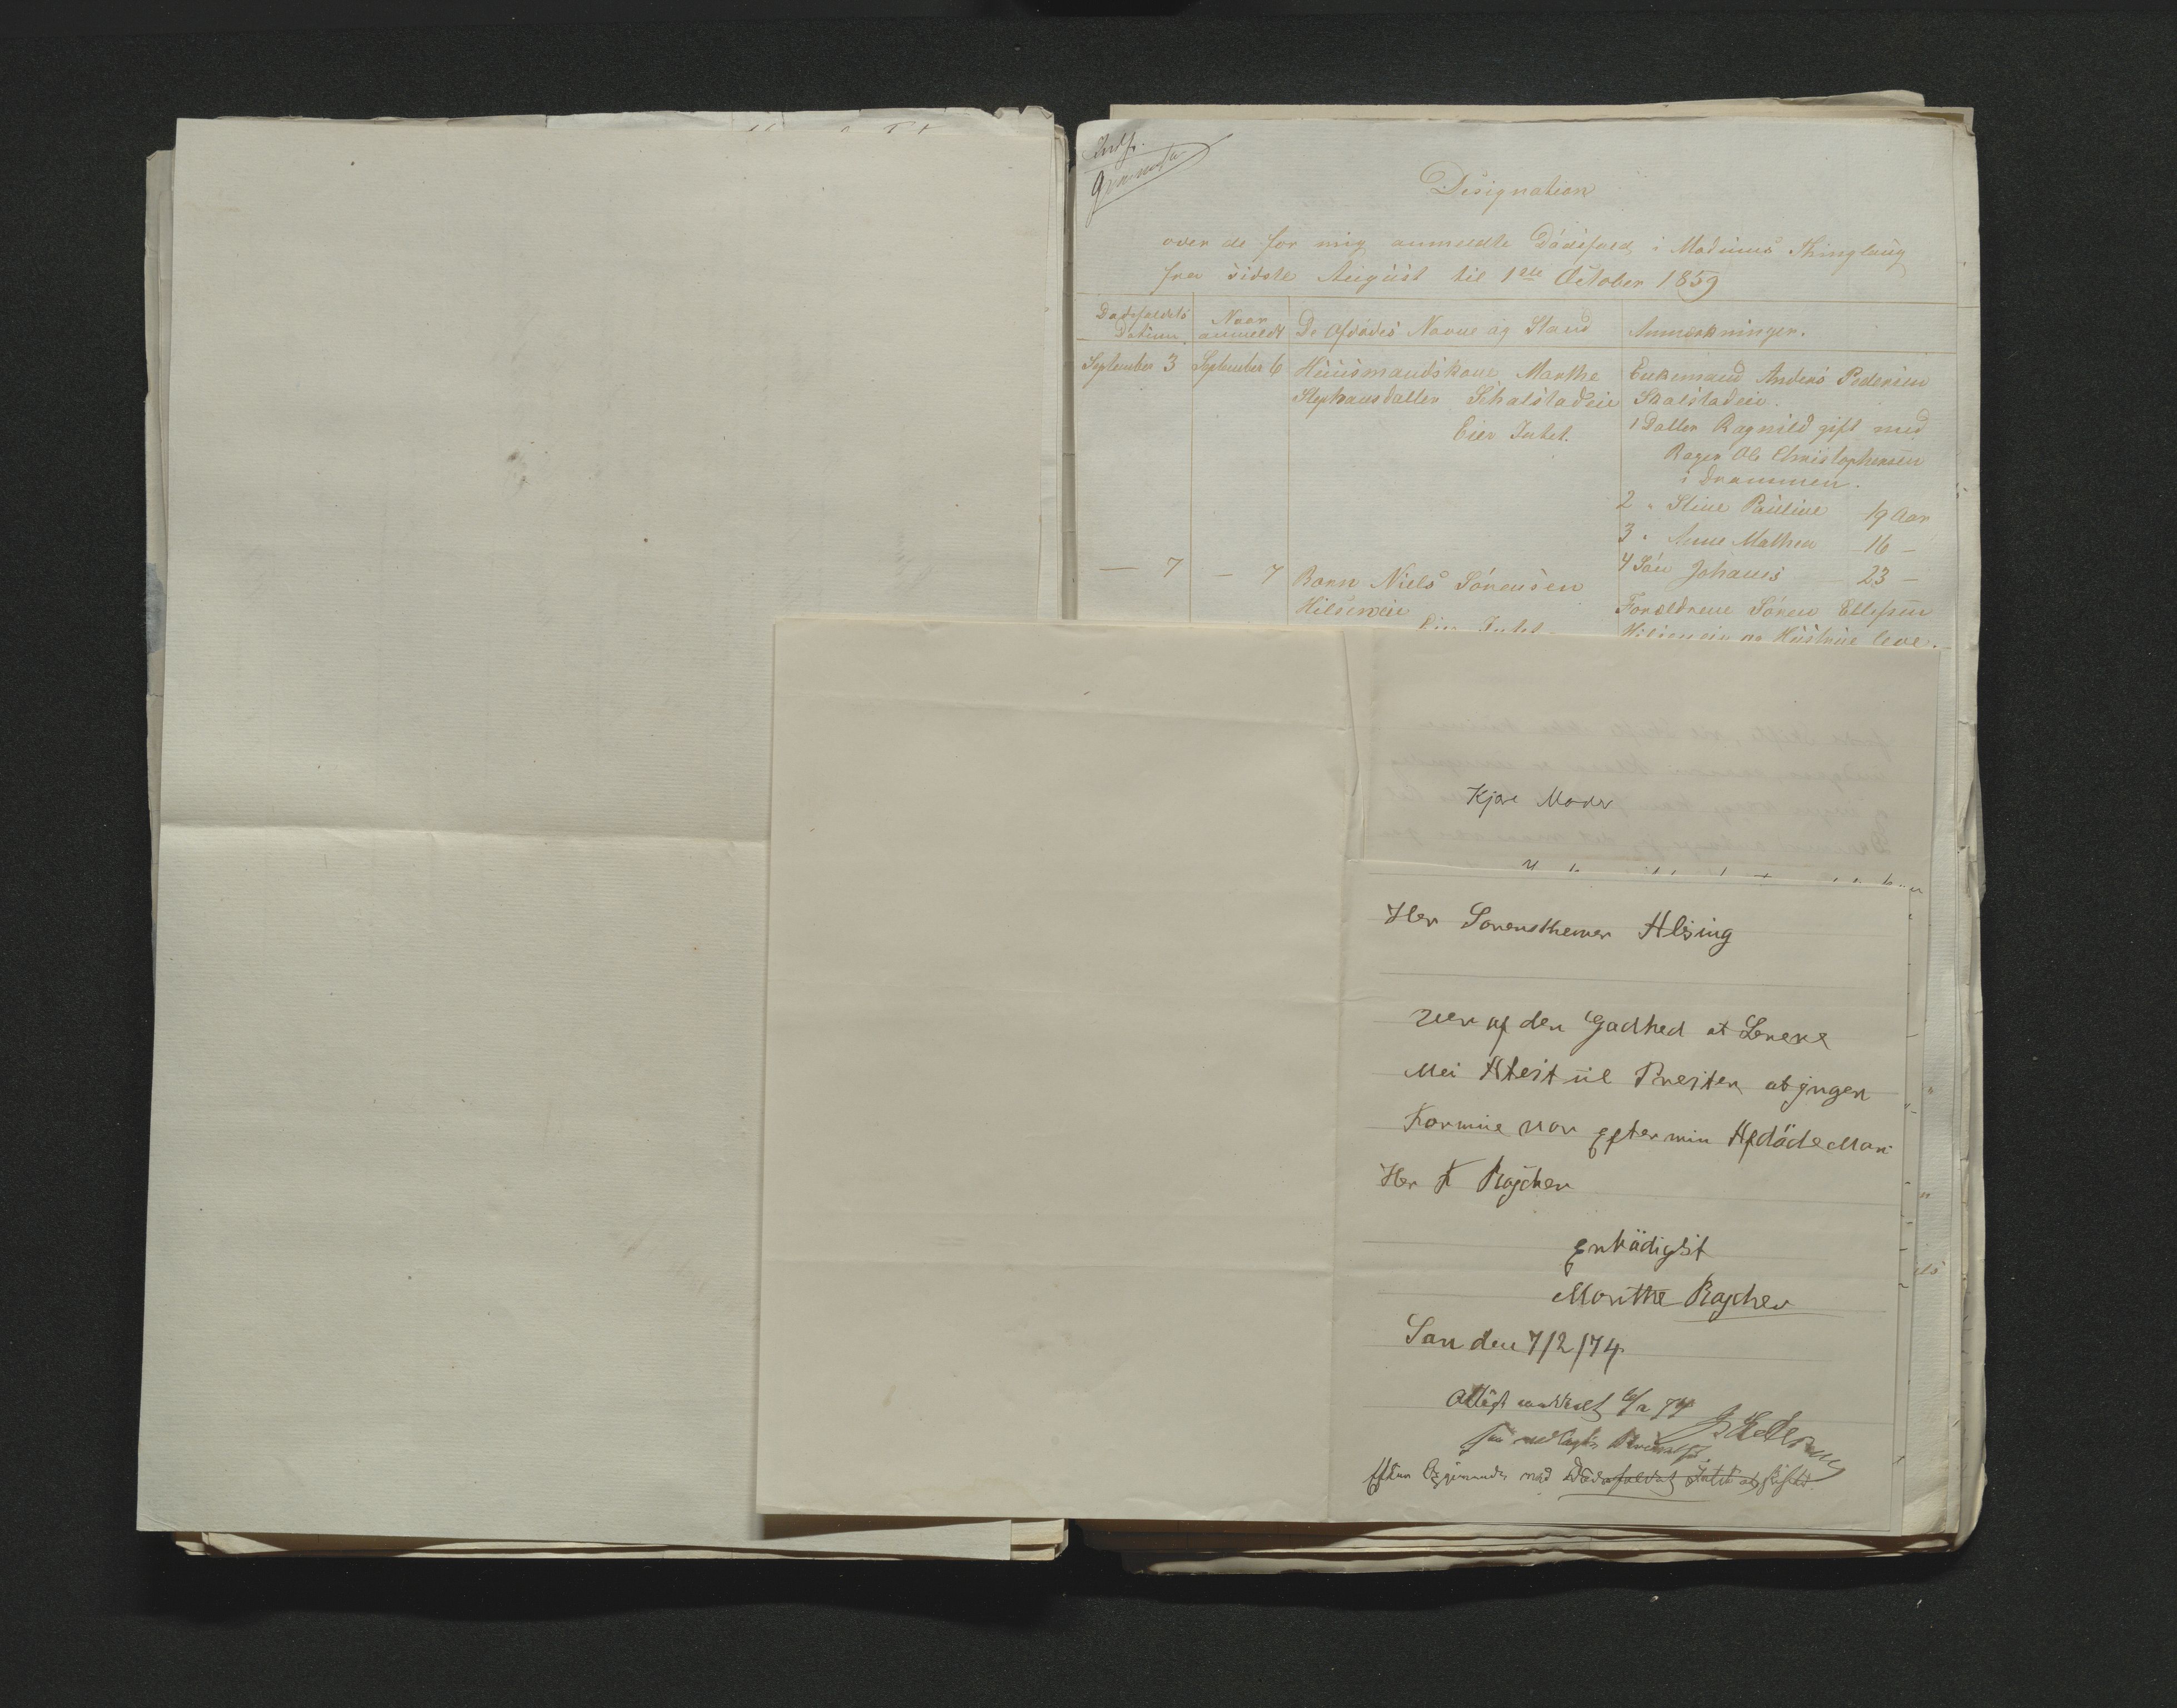 Designation
over de for mig anmeldte Dødsfald i Modums Thinglaug
fra sidste August til 1ste October 1859
Dødsfaldets Datum
Naar anmeldt
De Afdødes Navne og Stand
Anmærkninger.
September 3
September 6
Huusmandskone Marthe
Stephansdatter Schalstadeie
Eier Intet.
Enkemand Anders Pedersen
Skalstadeie.
1 Datter Ragnild gift med
Rager Ole Christophersen
i Drammen.
2 " Stine Pauline 19 Aar
3 " Anne Mathea 16 —
4 Søn Johans 23 —
— 7
— 7
Barn Niels Sørensen
Hilseneie
Eier Intet
Forældrene Søren Ellefsen
Hilseneie og Hustrue leve.
Kjære Moder
Her Sorenskriver Alsing
Ver af den Godhed at Levere
Mei Atest til Presten at jngen
Formue var efter min Afdöde Man
Her Røscher
Marithe Røscher
San den 7/2/74
Attest meddelt 6/2 74